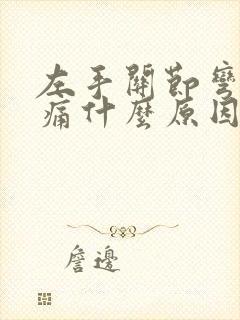 左手關節彎
痛什麼原因
詹邊